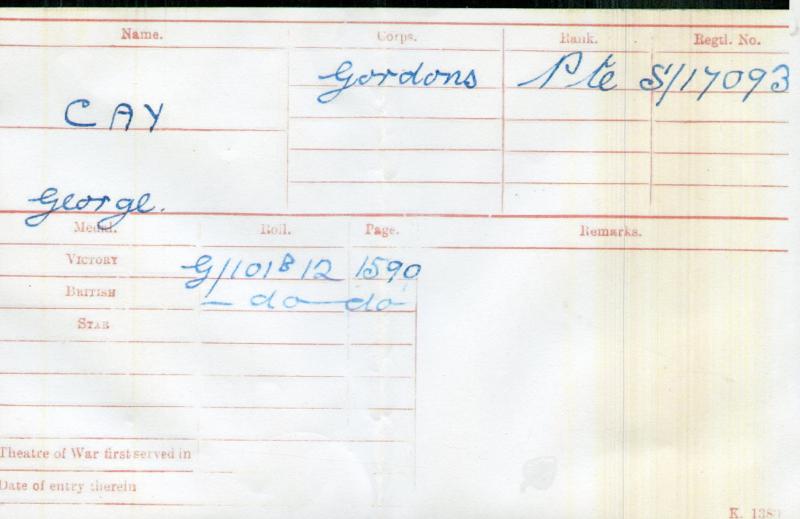 Name. Corps. Rank. Regtl. No.
Gordons Pte S/17093
CAY
George.
Medal. Roll. Page. Remarks.
VICTORY G/101B12 1590
BRITISH — do — do
STAR
Theatre of War first served in
Date of entry therein
K. 1380